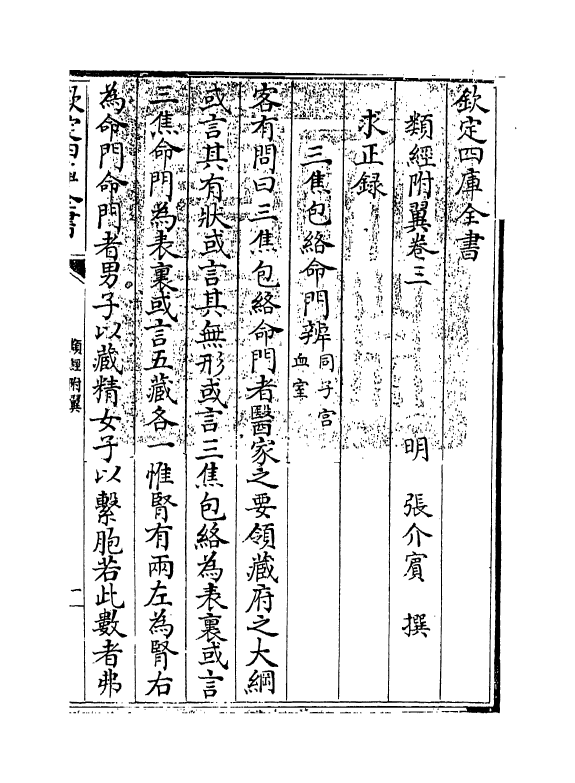 欽定四庫全書
類經附翼卷三
明 張介賓 撰
求正録
三焦包絡命門辨 同子宫血室
客有問曰三焦包絡命門者醫家之要領藏府之大綱
或言其有狀或言其無形或言三焦包絡為表裏或言
三焦命門為表裏或言五藏各一惟腎有兩左為腎右
為命門命門者男子以藏精女子以繫胞若此數者弗
欽定四庫全書
類經附翼